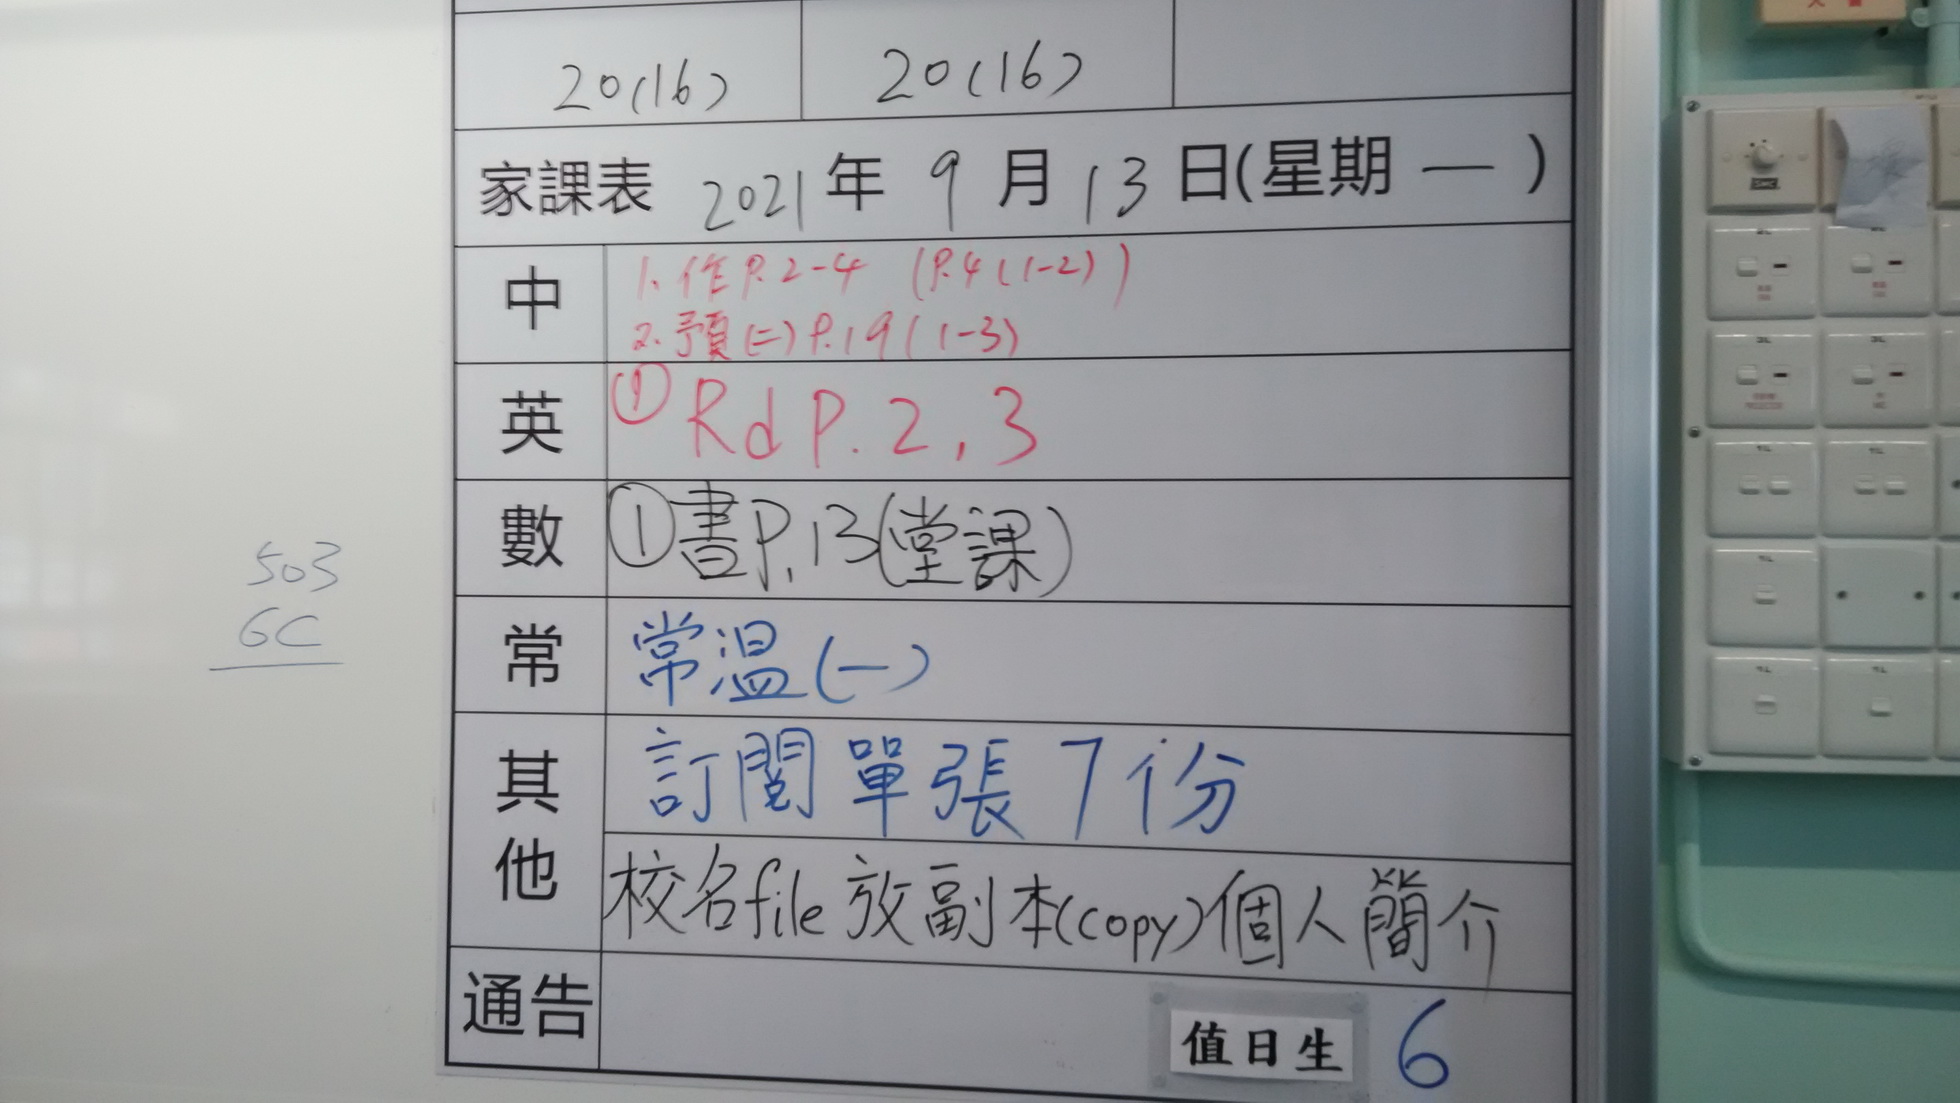 20(16) 20(16)
家課表 2021年 9月13日(星期一)
中 1. 作 P.2-4 (P.4(1-2))
2. 預(二) P.19(1-3)
英 ① Rd P.2,3
數 ①書P.13(堂課)
503
常 常溫(一)
6C
其他 訂閱單張7份
校名file放副本(copy)個人簡介
通告
值日生 6